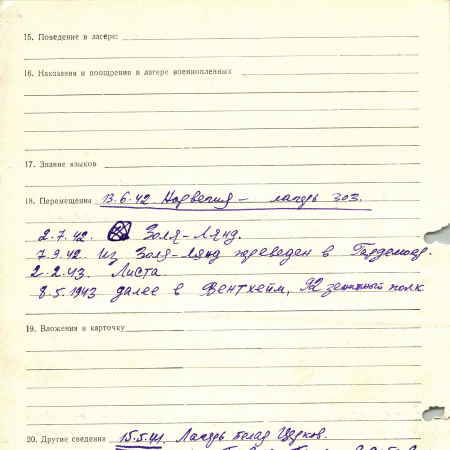 15. Поведение в лагере:
16. Наказания и поощрения в лагере военнопленных
17. Знание языков
18. Перемещения 13.6.42. Норвегия – лагерь 303.
2.7.42. Золя-Лянд.
7.9.42. Из Золя-Лянд переведен в Гардемоер.
2.2.43. Листа
8.5.1943 далее в Вентхейм, 92 зенитный полк
19. Вложения в карточку
20. Другие сведения 15.5.41. Лагерь